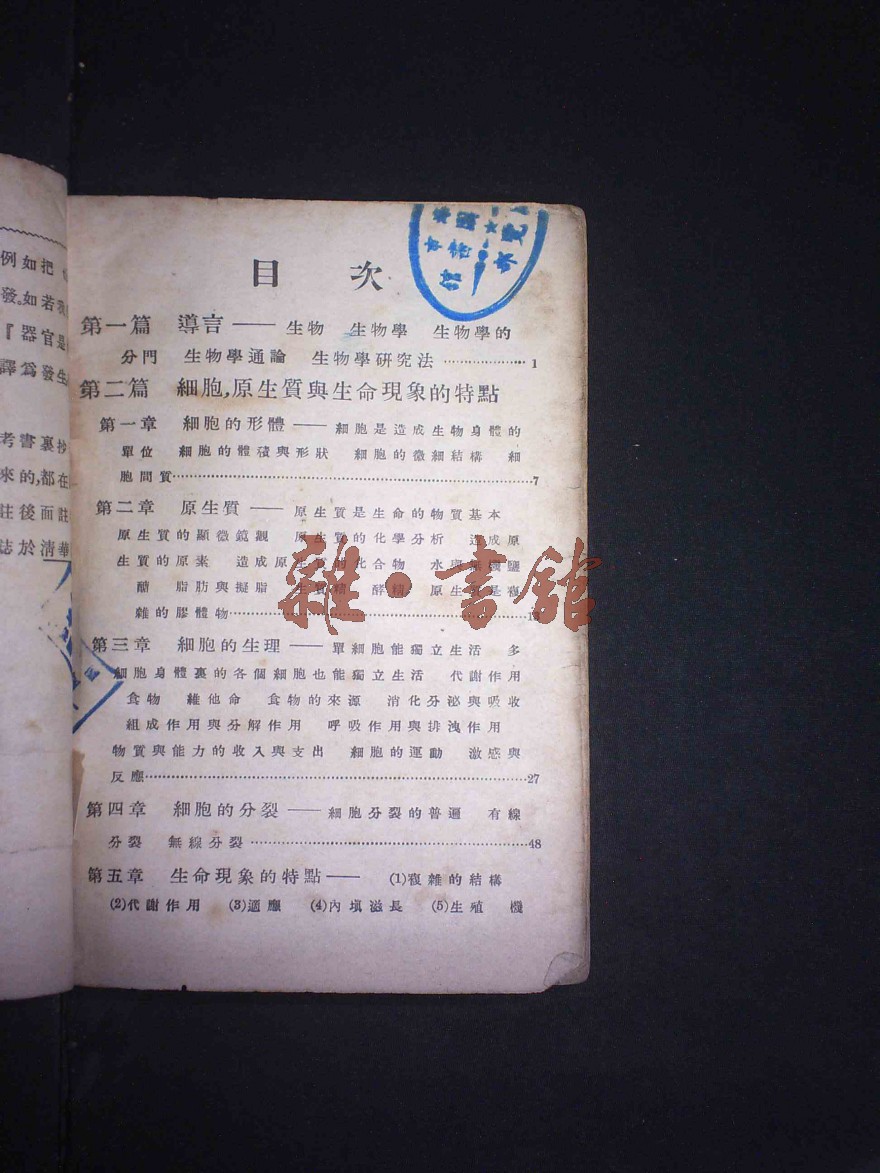 目 次
第一篇 導言 —— 生物 生物學 生物學的
分門 生物學通論 生物學研究法 ………………… 1
第二篇 細胞,原生質與生命現象的特點
第一章 細胞的形體 —— 細胞是造成生物身體的
單位 細胞的體積與形狀 細胞的微細結構 細
胞間質……………………………………………………7
第二章 原生質 —— 原生質是生命的物質基本
原生質的顯微鏡觀 原生質的化學分析 造成原
生質的原素 造成原生質的化合物 水與無機鹽
醣 脂肪與擬脂 生質精 酵精 原生質是複
雜的膠體物……………………………………………
第三章 細胞的生理 —— 單細胞能獨立生活 多
細胞身體裏的各個細胞也能獨立生活 代謝作用
食物 維他命 食物的來源 消化分泌與吸收
組成作用與分解作用 呼吸作用與排洩作用
物質與能力的收入與支出 細胞的運動 激感與
反應……………………………………………………27
第四章 細胞的分裂 —— 細胞分裂的普遍 有線
分裂 無線分裂………………………………………48
第五章 生命現象的特點 —— (1)複雜的結構
(2)代謝作用 (3)適應 (4)內填滋長 (5)生殖 機
雜·書館
例如把
發。如若
『器官是
譯爲發生
考書裏抄
來的,都在
註後而註
誌於清華